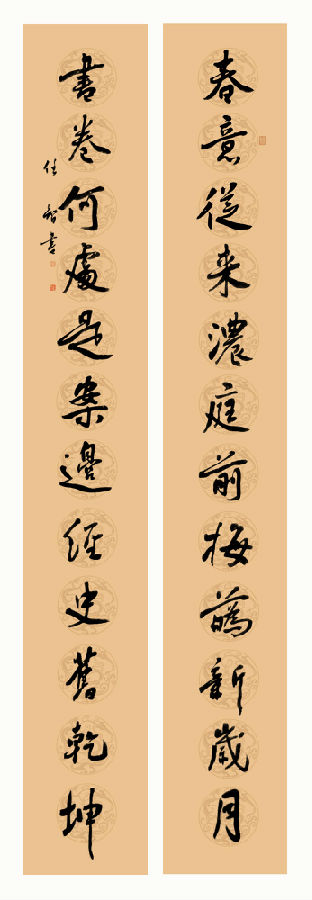 春意從来濃庭前梅新歲月
書卷何處是案邊經史舊乾坤
任書